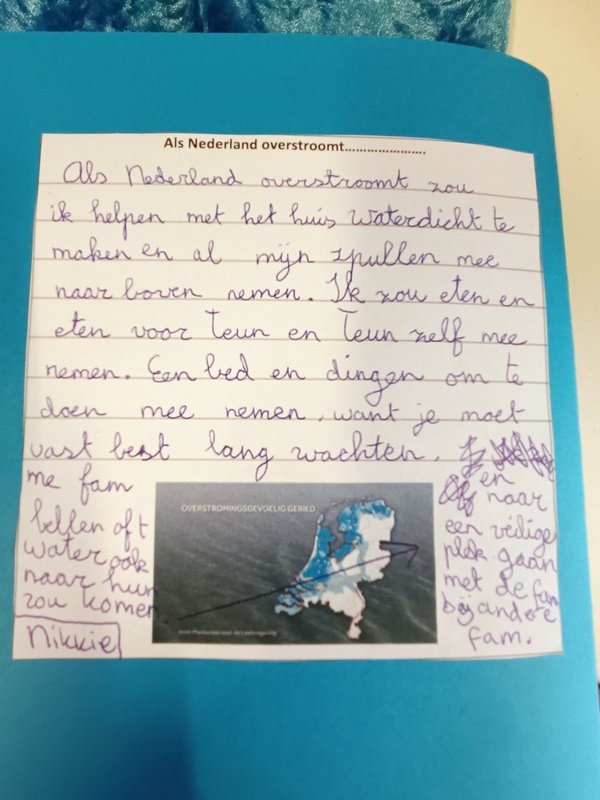 Als Nederland overstroomt......................
Als Nederland overstroomt zou
ik helpen met het huis waterdicht te
maken en al mijn spullen mee
naar boven nemen. Ik zou eten en
eten voor Teun en Teun zelf mee
nemen. Een bed en dingen om te
doen mee nemen, want je moet
vast best lang wachten.
me fam
bellen oft
water ook
naar hun
zou komen
Nikkie
OVERSTROMINGSGEVOELIG GEBIED
en
naar
een veilige
plek gaan
met de fam
bij andere
fam.